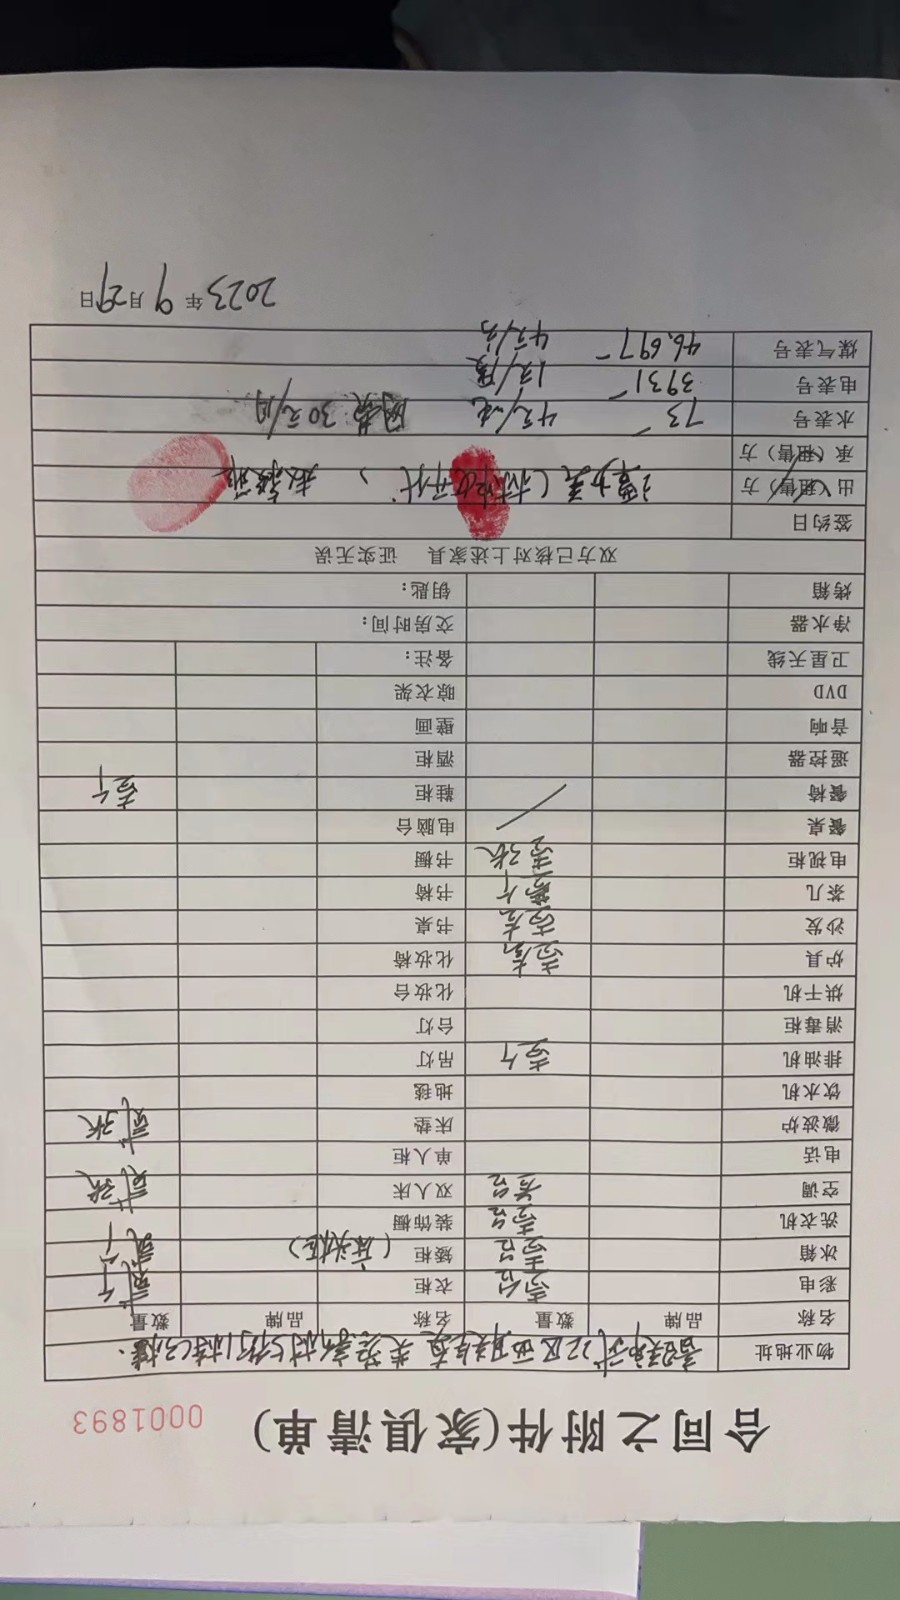 合同之附件(家俱清单) 0001893
物业地址
名称 品牌 数量 名称 品牌 数量
彩电 壹台 衣柜 贰个
冰箱 壹台 矮柜 (床头柜) 贰个
洗衣机 壹台 装饰橱
空调 壹台 双人床 贰张
电话 单人柜
微波炉 床垫 贰张
饮水机 地毯
排油机 壹个 吊灯
消毒柜 台灯
烘干机 化妆台
炉具 壹套 化妆椅
沙发 壹套 书桌
茶几 壹个 书椅
电视柜 壹张 书橱
餐桌 电脑台
餐椅 鞋柜 壹个
遥控器 酒柜
音响 壁画
DVD 晾衣架
卫星天线 备注:
净水器 交房时间:
烤箱 钥匙:
双方已核对上述家具 证实无误
签约日
出(租售)方
承(租售)方
水表号 73 4元/吨 网费 30元/月
电表号 3931 1元/度
煤气表号 46.697 4元/方
2023年9月29日